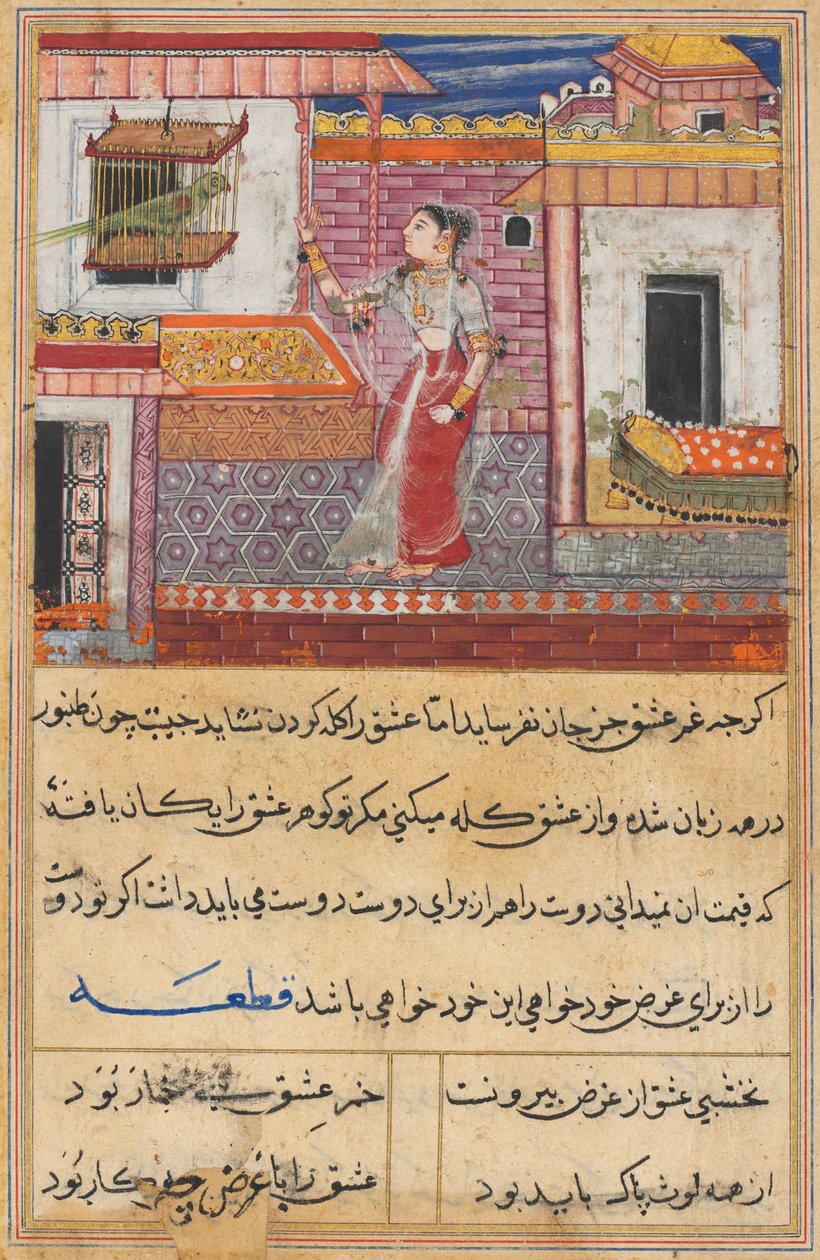 اکرجه غم عشق جز جان نفرساید اما عشق را کله کردن نشاید جیت چون طنبور
درمه زبان شده و از عشق کله میکنی مکر تو کوهر عشق رایکان یافتهٔ
که قیمت ان نمیدانی دوست را هم از برای دوست دوست می باید داشت اکر تو دوست
را از برای غرض خود خواهی این خود خواهی باشد قطعه
نخشبی عشق از غرض بیرونست خمر عشق بی خمار بود
از همه لوث پاک باید بود عشق را با غرض چه کار بود